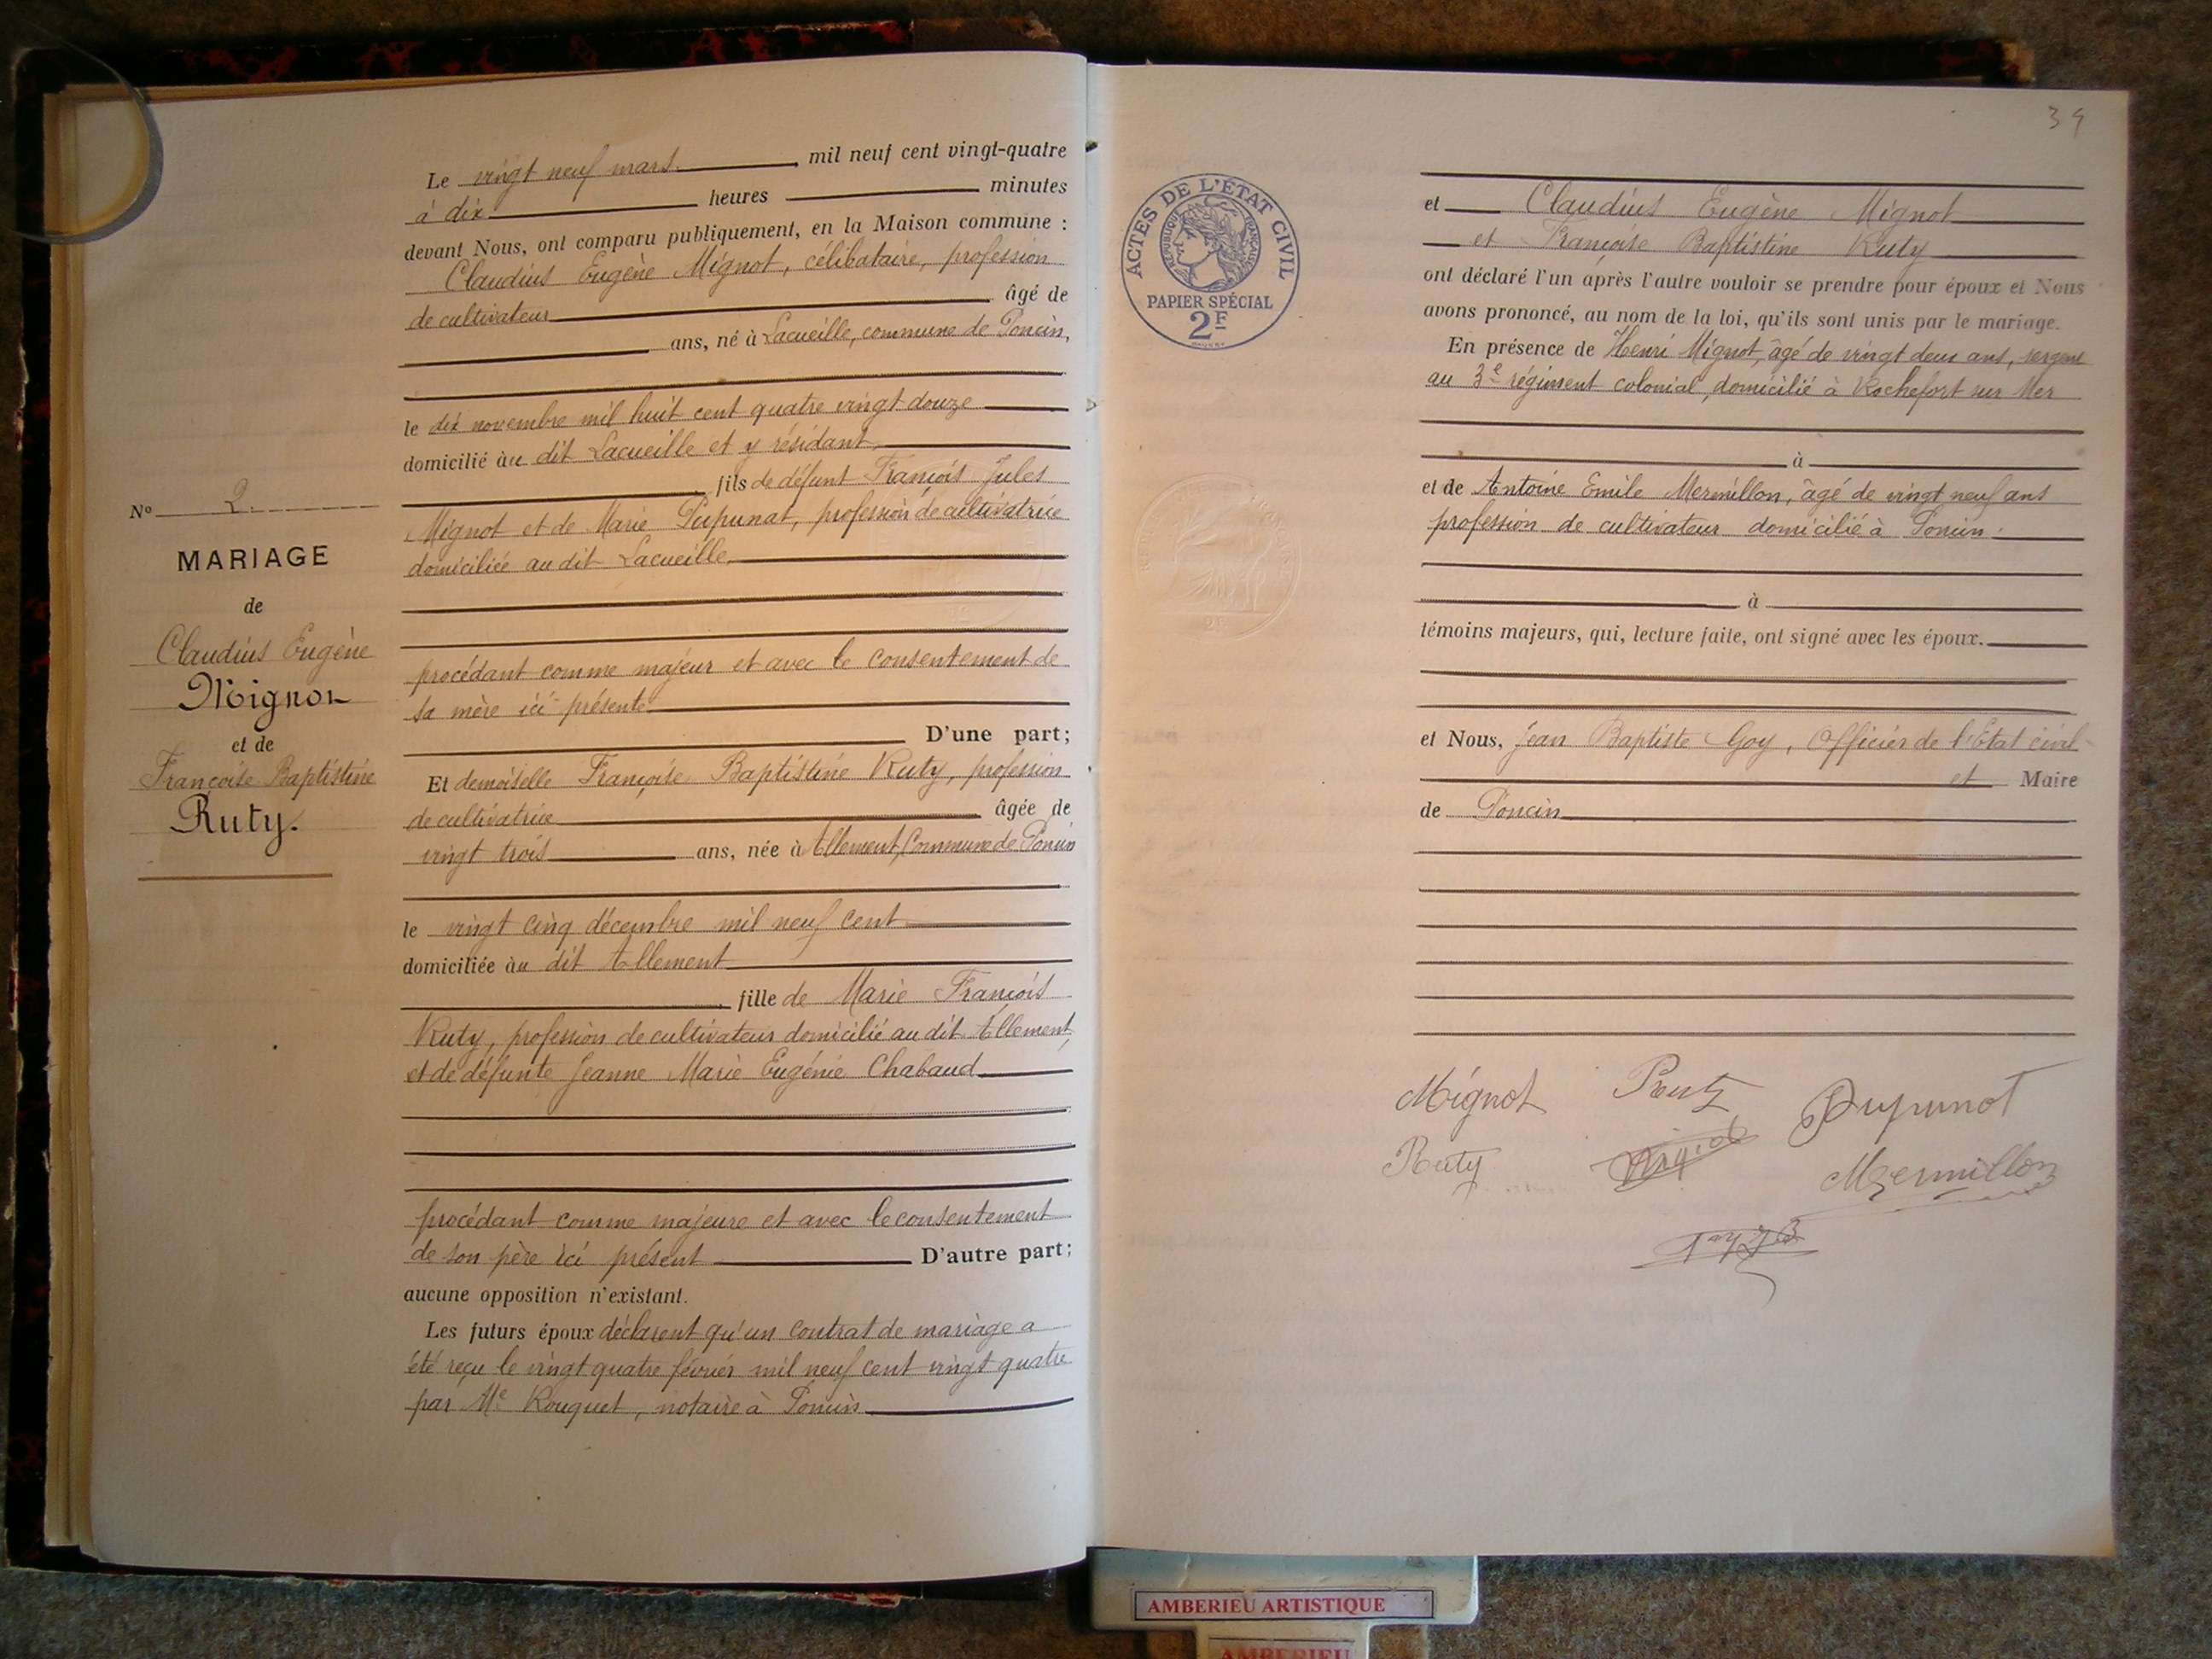 Le vingt neuf mars mil neuf cent vingt-quatre
à dix heures minutes
devant Nous, ont comparu publiquement, en la Maison commune :
Claudius Eugène Mignot, célibataire, profession
de cultivateur âgé de
ans, né à Lacueille, commune de Poncin,
le dix novembre mil huit cent quatre vingt douze
domicilié au dit Lacueille et y résidant,
fils de défunt François Jules
Mignot et de Marie Pupunat, profession de cultivatrice
domiciliée au dit Lacueille
procédant comme majeur et avec le consentement de
sa mère ici présente
D'une part;
Et demoiselle Françoise Baptistine Ruty, profession
de cultivatrice âgée de
vingt trois ans, née à Allement, Commune de Poncin
le vingt cinq décembre mil neuf cent
domiciliée au dit Allement
fille de Marie François
Ruty, profession de cultivateur domicilié au dit Allement,
et de défunte Jeanne Marie Eugénie Chabaud
procédant comme majeure et avec le consentement
de son père ici présent D'autre part;
aucune opposition n'existant.
Les futurs époux déclarent qu'un contrat de mariage a
été reçu le vingt quatre février mil neuf cent vingt quatre
par Me Rouquet, notaire à Poncin
No 2.
MARIAGE
de
Claudius Eugène
Mignot
et de
Françoise Baptistine
Ruty.
39
ACTES DE L'ÉTAT CIVIL
RÉPUBLIQUE FRANÇAISE
PAPIER SPÉCIAL
2F
et Claudius Eugène Mignot
et Françoise Baptistine Ruty
ont déclaré l'un après l'autre vouloir se prendre pour époux et Nous
avons prononcé, au nom de la loi, qu'ils sont unis par le mariage.
En présence de Henri Mignot, âgé de vingt deux ans, sergent
au 3e régiment colonial, domicilié à Rochefort sur Mer
à
et de Antoine Emile Mermillon, âgé de vingt neuf ans
profession de cultivateur domicilié à Poncin.
à
témoins majeurs, qui, lecture faite, ont signé avec les époux.
et Nous, Jean Baptiste Goy, Officier de l'Etat civil
et Maire
de Poncin
Mignot Ruty Pupunat
Ruty Mignot Mermillon
AMBERIEU ARTISTIQUE
AMBERIEU